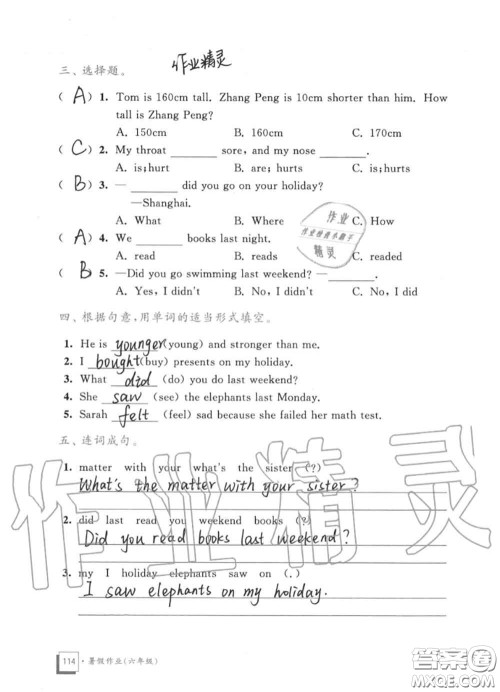 作业精灵
三、选择题。
( A ) 1. Tom is 160cm tall. Zhang Peng is 10cm shorter than him. How
tall is Zhang Peng?
A. 150cm B. 160cm C. 170cm
( C ) 2. My throat ________ sore, and my nose ________.
A. is;hurt B. are; hurts C. is;hurts
( B ) 3. — ________ did you go on your holiday?
—Shanghai.
A. What B. Where C. How
( A ) 4. We ________ books last night.
A. read B. reads C. readed
( B ) 5. —Did you go swimming last weekend? — ________.
A. Yes, I didn't B. No, I didn't C. No, I did
作业
精灵
四、根据句意,用单词的适当形式填空。
1. He is younger (young) and stronger than me.
2. I bought (buy) presents on my holiday.
3. What did (do) you do last weekend?
4. She saw (see) the elephants last Monday.
5. Sarah felt (feel) sad because she failed her math test.
五、连词成句。
1. matter with your what's the sister (?)
What's the matter with your sister?
2. did last read you weekend books (?)
Did you read books last weekend?
3. my I holiday elephants saw on (.)
I saw elephants on my holiday.
作业精灵
114 · 暑假作业(六年级)
答案圈
MXQE.COM